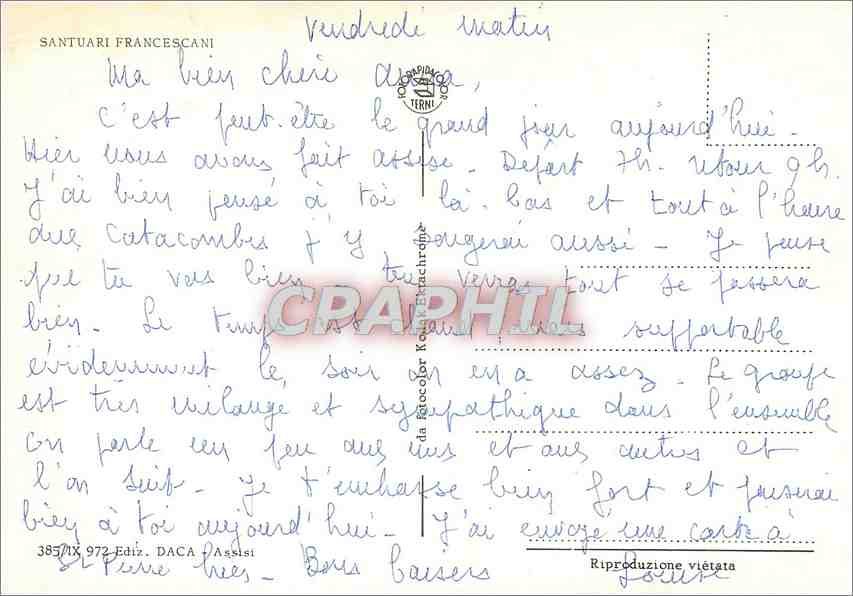 Vendredi matin
SANTUARI FRANCESCANI
Ma bien chère
FOTORAPIDACOLOR TERNI
c'est peut-être le grand jour aujourd'hui -
Hier nous avons fait assise - Départ 7h. retour 9h.
J'ai bien pensé à toi là-bas et tout à l'heure
aux Catacombes j'y songerai aussi - Je pense
que tu vas bien - tu verras tout se passera
bien - Le temps est chaud mais supportable
évidemment le soir on en a assez - Le groupe
est très mélangé et sympathique dans l'ensemble
on parle un peu aux uns et aux autres et
l'on suit - Je t'embrasse bien fort et penserai
bien à toi aujourd'hui - J'ai envoyé une carte à
St Pierre hier - Bons baisers Louise
385/IX 972 Ediz. DACA - Assisi
Riproduzione viëtata
da fotocolor Kodak Ektachrome
CPAPHIL